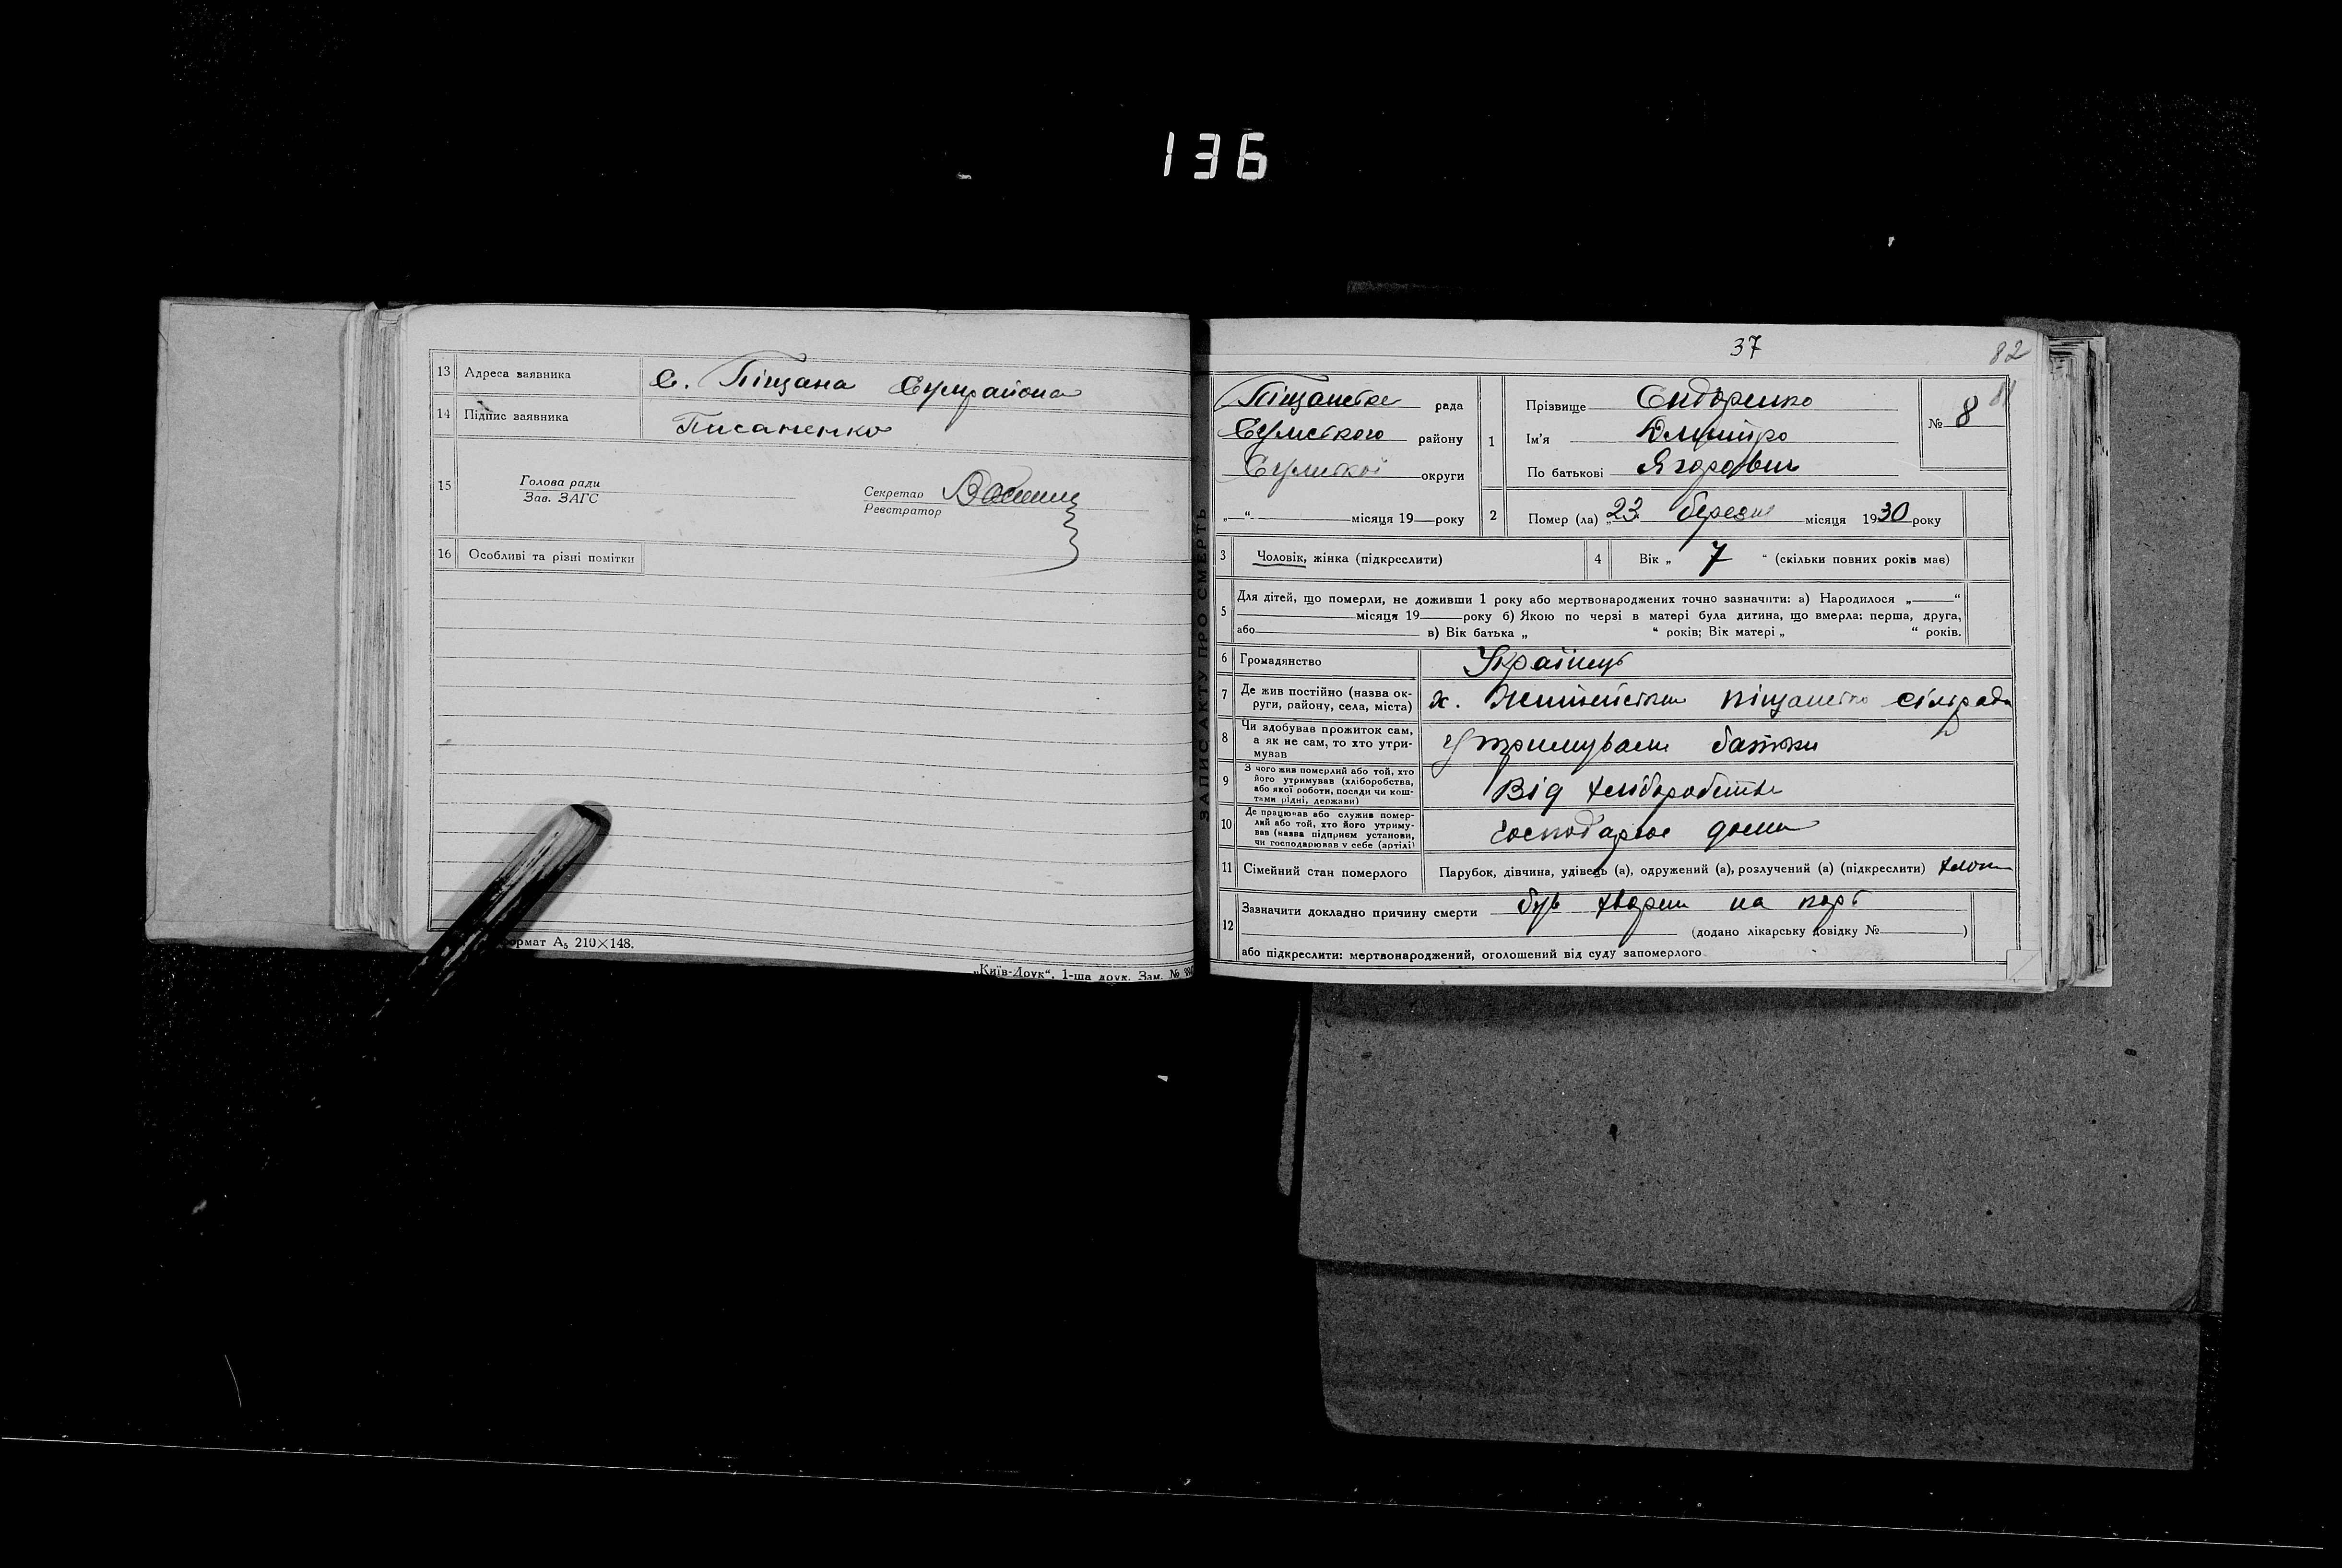 136
13 Адреса заявника С. Піщана Сумрайона
14 Підпис заявника Писаненко
15 Голова ради
Зав. ЗАГС
Секретар
Реєстратор
16 Особливі та різні помітки
формат А₅ 210×148.
„Київ-Друк“. 1-ша друк. Зам. №
ЗАПИС АКТУ ПРО СМЕРТЬ
37
82
81
Піщанська рада
Сумського району
Сумської округи
„—“ місяця 19—року
1 Прізвище Сидоренко
Ім'я Дмитро
По батькові Ягорович
№ 8
2 Помер (ла) „23 березня місяця 1930 року
3 Чоловік, жінка (підкреслити)
4 Вік „ 7 “ (скільки повних років має)
5 Для дітей, що померли, не доживши 1 року або мертвонароджених точно зазначити: а) Народилося „—“
місяця 19—року б) Якою по черзі в матері була дитина, що вмерла: перша, друга,
або в) Вік батька „ “ років; Вік матері „ “ років.
6 Громадянство Українець
7 Де жив постійно (назва ок-
руги, району, села, міста) х. сільрада
8 Чи здобував прожиток сам,
а як не сам, то хто утри-
мував Утримували батьки
9 З чого жив померлий або той, хто
його утримував (хліборобства,
або якої роботи, посади чи кош-
тами рідні, держави) Від хліборобства
10 Де працював або служив помер-
лий або той, хто його утриму-
вав (назва підприєм установи,
чи господарював у себе (артілі) господарює дома
11 Сімейний стан померлого Парубок, дівчина, удівець (а), одружений (а), розлучений (а) (підкреслити)
12 Зазначити докладно причину смерти був хворий на
(додано лікарську довідку № )
або підкреслити: мертвонароджений, оголошений від суду запомерлого